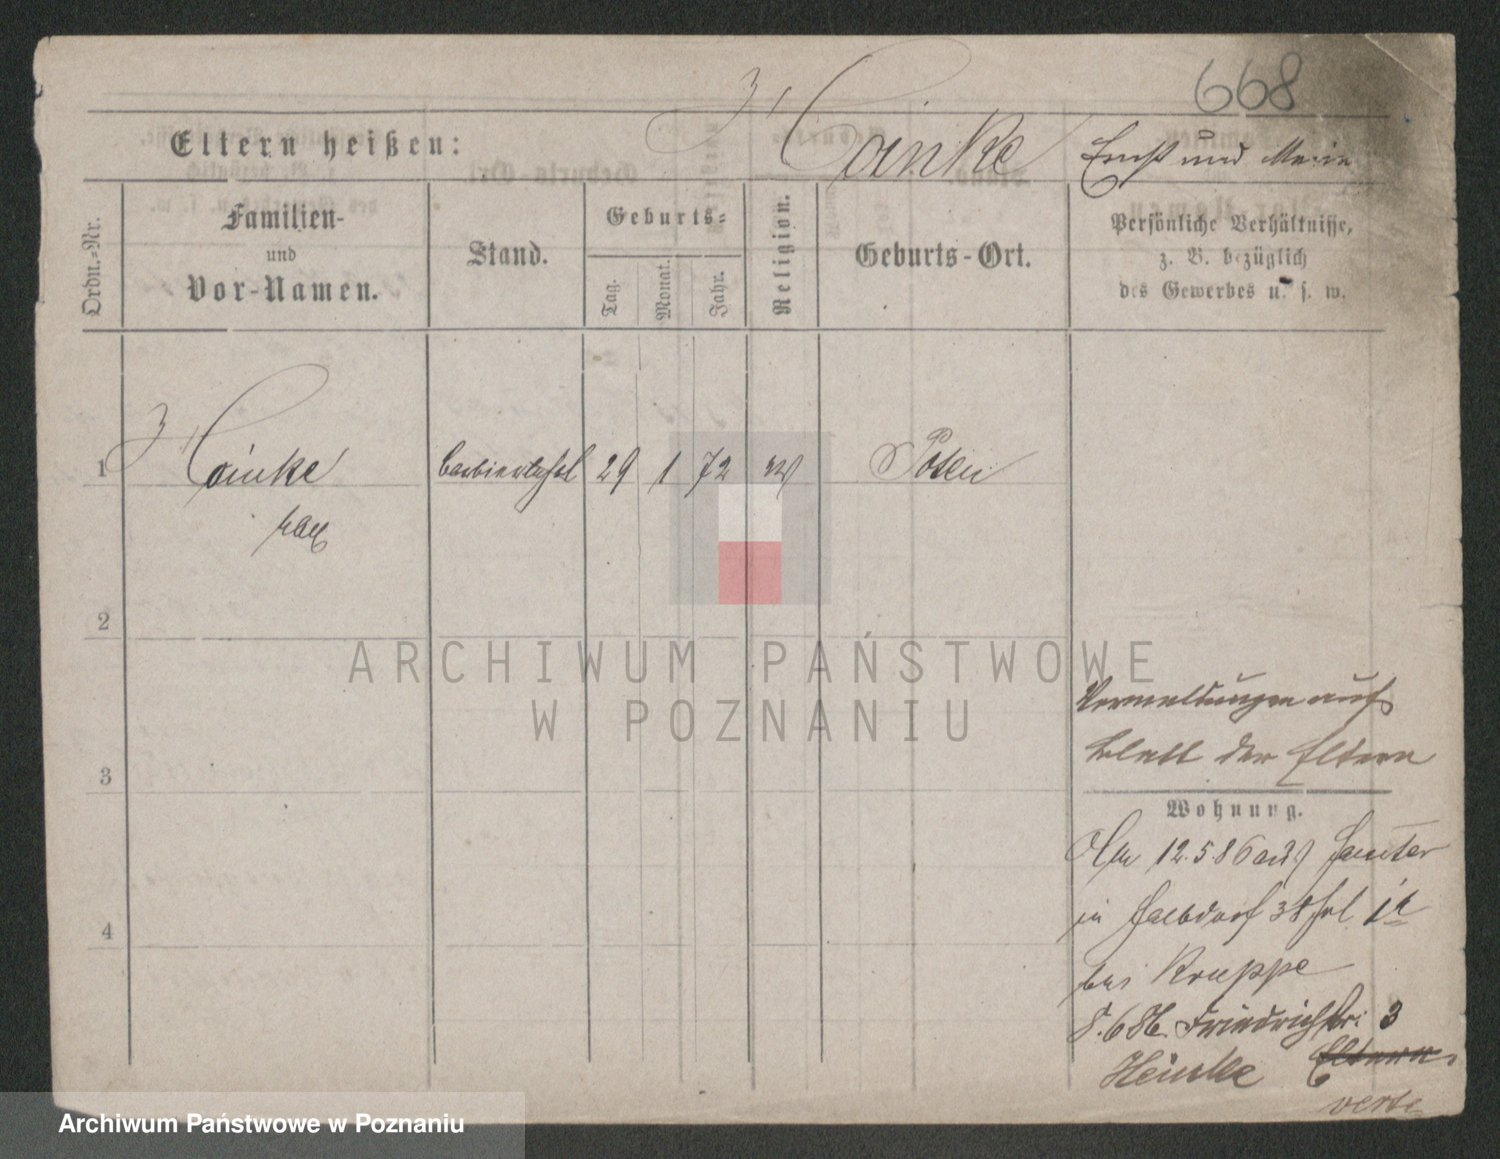 668
Cainke Ernst und Marie
Eltern heißen:
Ordn.-Nr.
Familien-
und
Vor-Namen.
Stand.
Geburts-
Tag.
Monat.
Jahr.
Religion.
Geburts-Ort.
Persönliche Verhältnisse,
z. B. bezüglich
des Gewerbes u. s. w.
1 Cainke 29 1 72 Posen
Max
2
ARCHIWUM PAŃSTWOWE
W POZNANIU
Vermeldungen aufs
Blatt der Eltern
3
Wohnung.
Am 12.5.86 aus Samter
in Halbdorf 38
4
bei Kruppe
8.6.86. Friedrichstr. 3
Heinke Eltern
verte
Archiwum Państwowe w Poznaniu